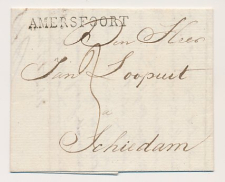 AMERSFOORT
Den Heer
Jan Loopuit
a
Schiedam